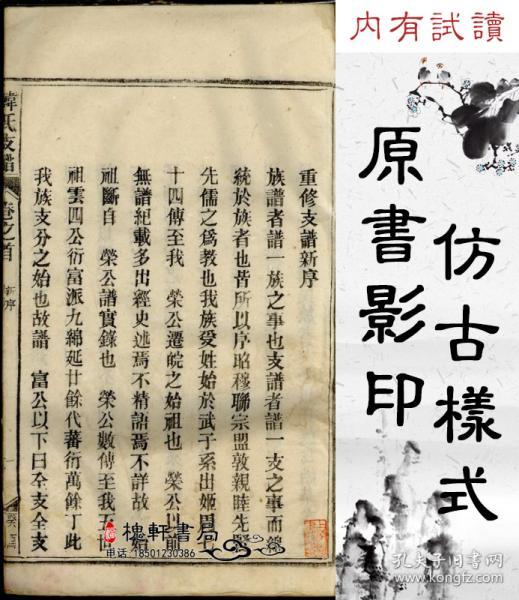 內有試讀
仿古樣式
原書影印
重修支譜新序
族譜者譜一族之事也支譜者譜一支之事而總
統於族者也皆所以序昭穆聯宗盟敦親睦先賢
先儒之為教也我族受姓始於武子系出姬周
十四傳至我 榮公遷皖之始祖也 榮公以前
無譜紀載多出經史述焉不精語焉不詳故始
祖斷自 榮公譜實錄也 榮公數傳至我五世
祖雲四公衍富派九綿延廿餘代蕃衍萬餘丁此
我族支分之始也故譜 富公以下曰全支全支
韓氏支譜
卷之首
新序
一
槐軒書局
电话 18501230386
孔夫子旧书网
www.kongfz.com